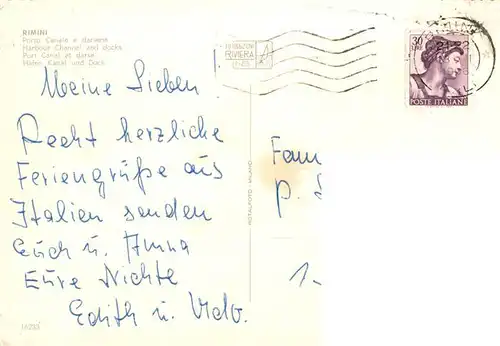 RIMINI
Porto Canale e darsena
Harbour Channel and docks
Port Canal et darse
Hafen Kanal und Dock
RIVIERA
30
LIRE
21-22
POSTE ITALIANE
Meine Lieben!
Recht herzliche
Feriengrüße aus
Italien senden
Euch u. Anna
Eure Nichte
Edith u. Udo.
ROTALFOTO - MILANO
Fam
P.
1-